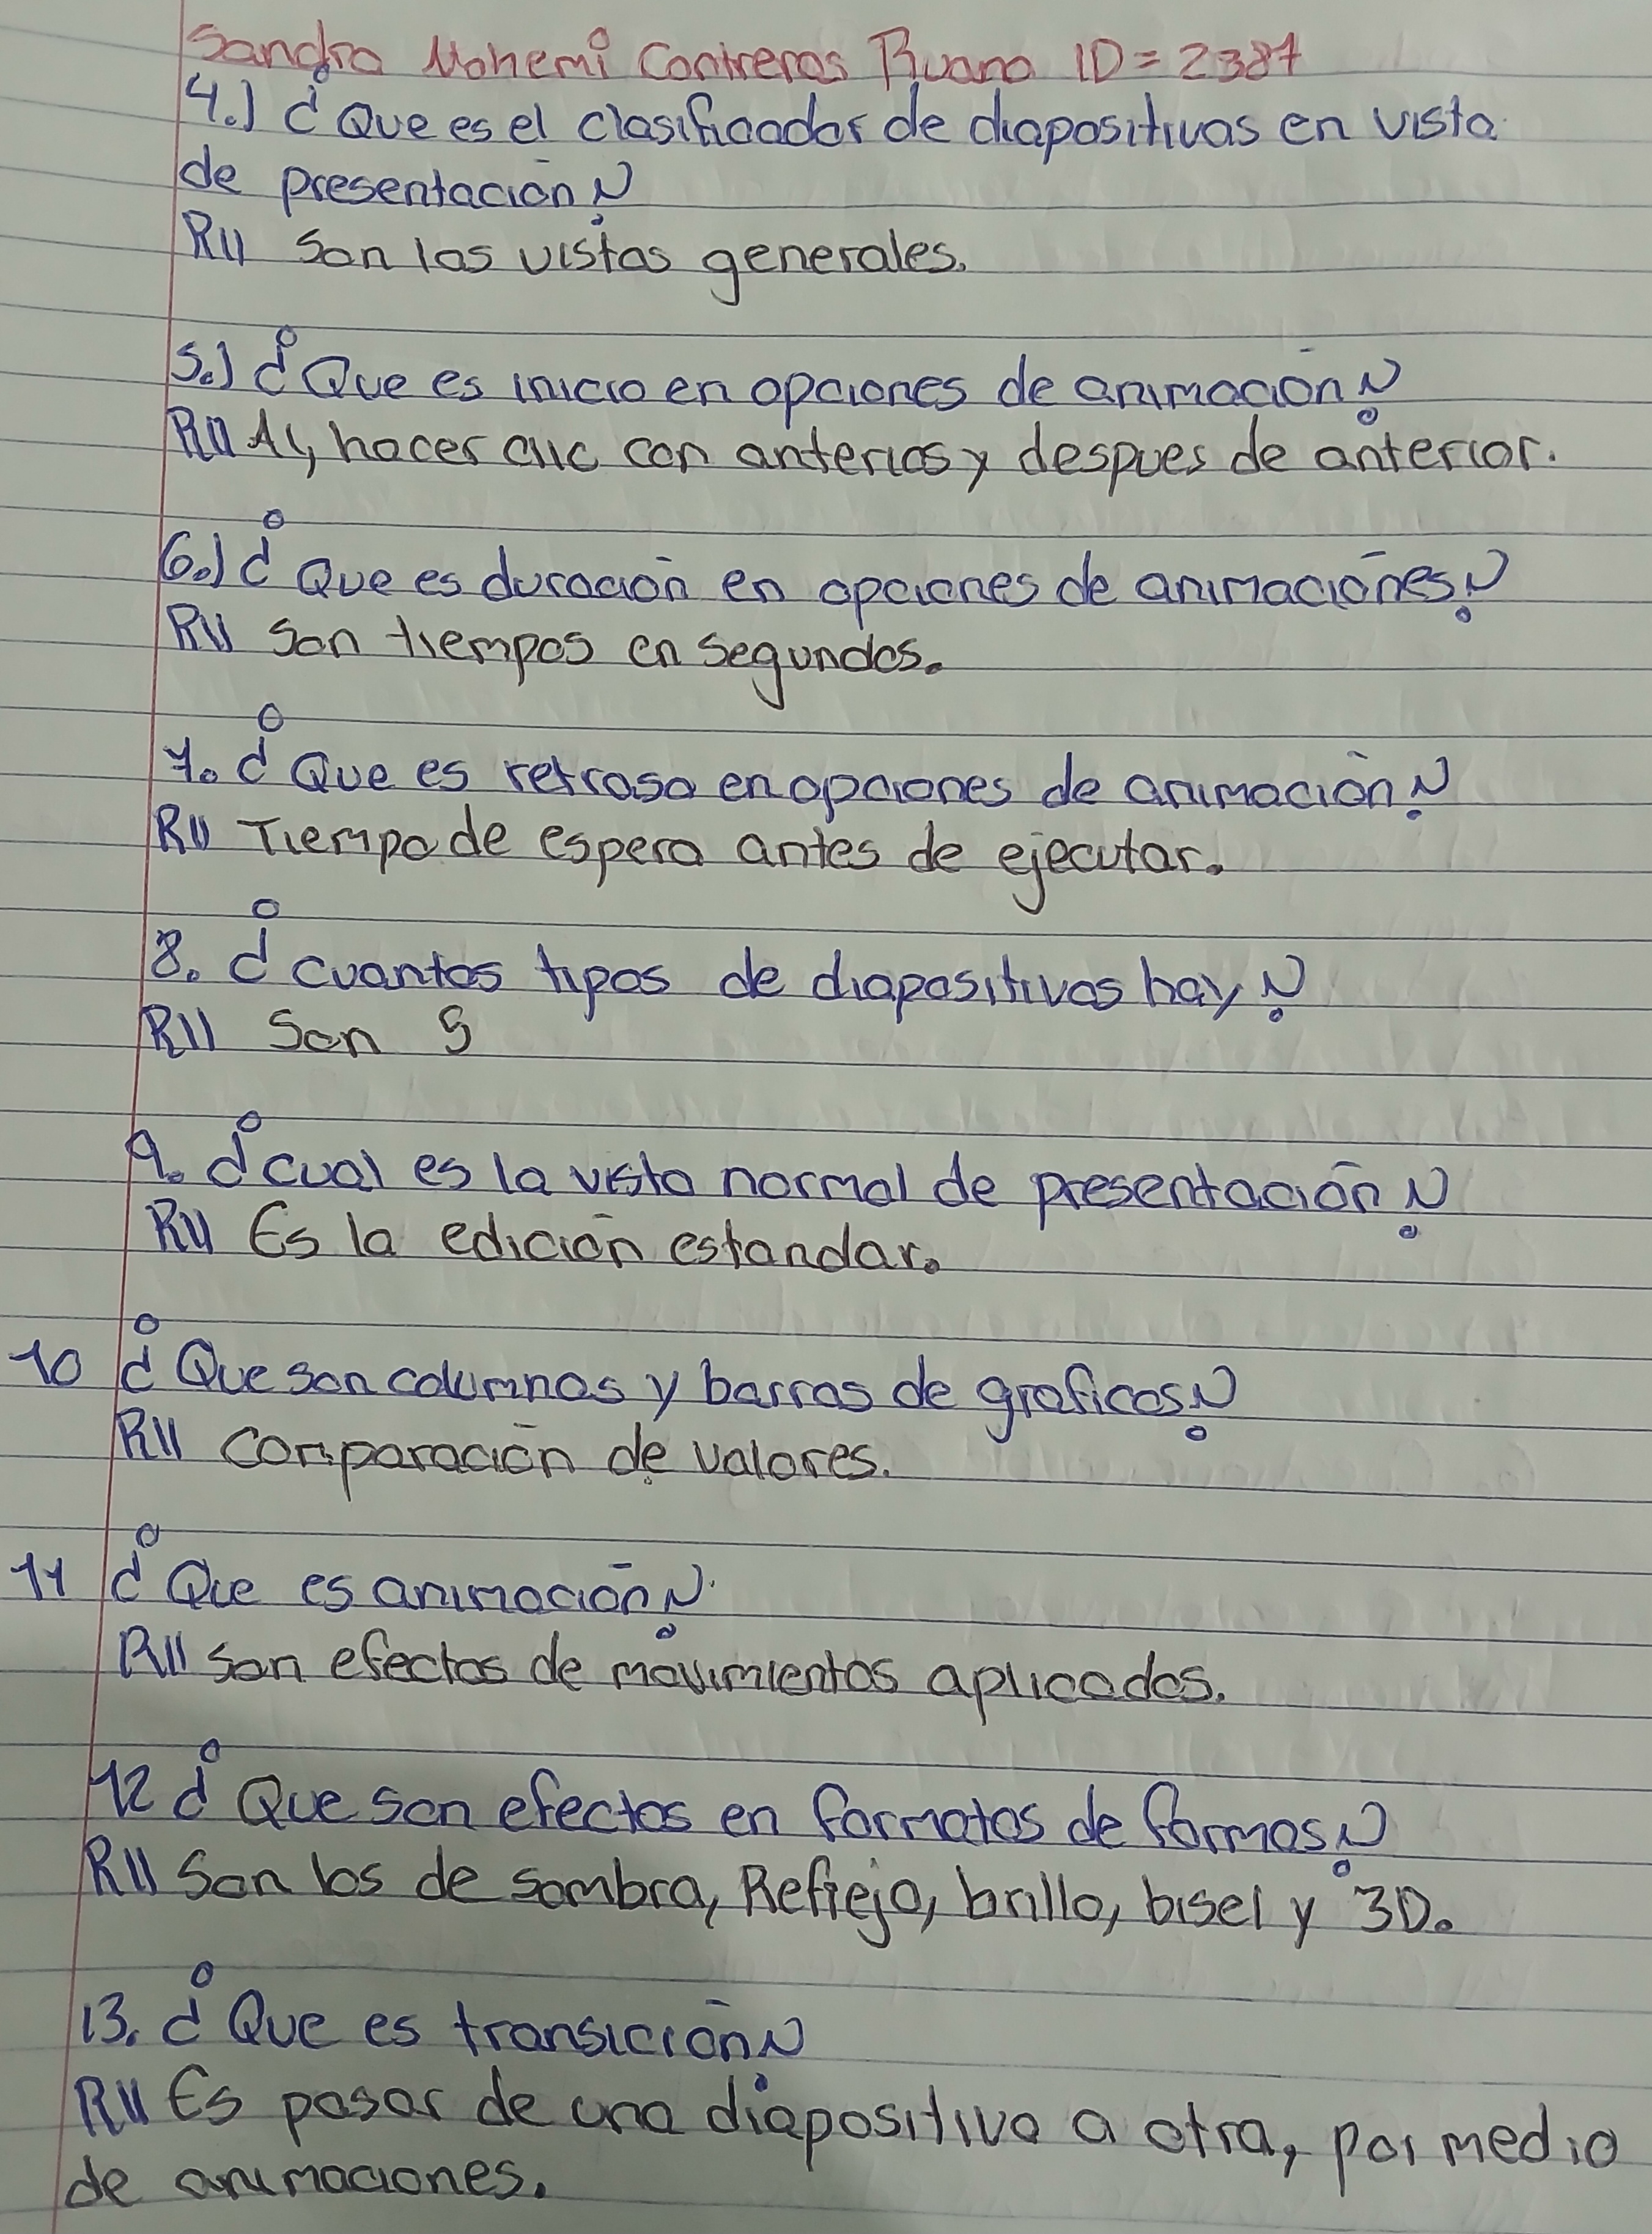 Sandra Nohemi Contreras Ruano ID=2387
4.) ¿Que es el clasificador de diapositivas en vista
de presentación?
R// Son las vistas generales.
5.) ¿Que es inicio en opciones de animación?
R// Al, hacer clic con anterior y despues de anterior.
6.) ¿Que es duración en opciones de animaciónes?
R// Son tiempos en segundos.
7. ¿Que es retraso en opciones de animación?
R// Tiempo de espera antes de ejecutar.
8. ¿cuantos tipos de diapositivas hay?
R// Son 5
9. ¿cual es la vista normal de presentación?
R// Es la edición estandar.
10 ¿Que son columnas y barras de graficos?
R// comparación de valores.
11 ¿Que es animación?
R// son efectos de movimientos aplicados.
12 ¿Que son efectos en formatos de formas?
R// Son los de sombra, Reflejo, brillo, bisel y 3D.
13. ¿Que es transición?
R// Es pasar de una diapositiva a otra, por medio
de animaciones.